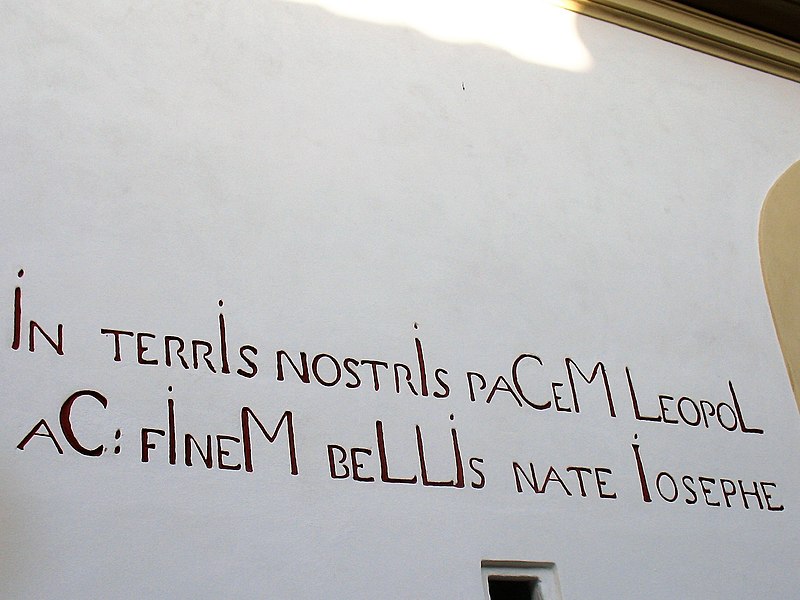 İN TERRİS NOSTRİS PACEM LEOPOL
AC: FİNEM BELLİS NATE İOSEPHE